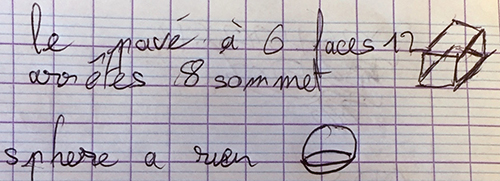 le pavé à 6 faces 12
arrêtes 8 sommet
sphere a rien